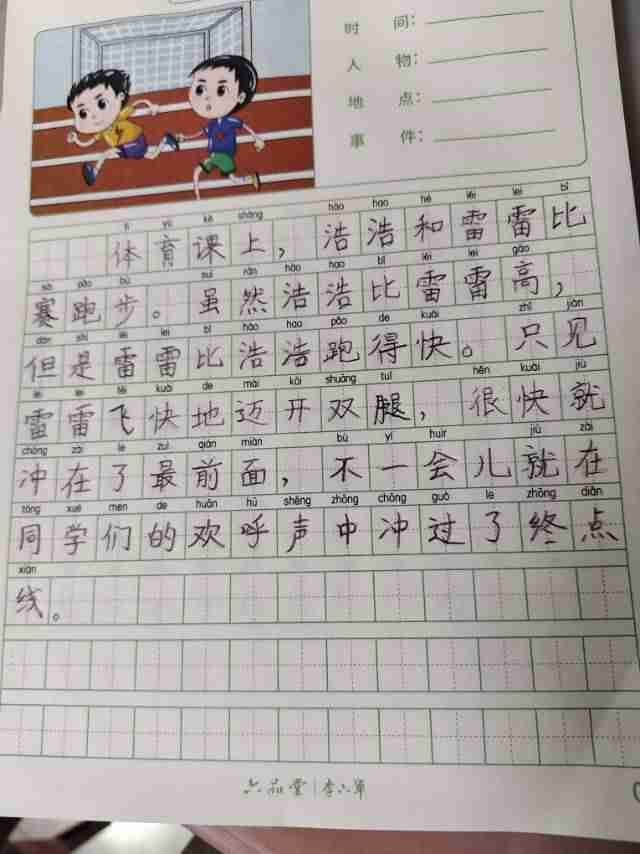 时 间：
人 物：
地 点：
事 件：
tǐ yù kè shàng hào hao hé léi lei bǐ
体育课上，浩浩和雷雷比
sài pǎo bù suī rán hào hao bǐ léi lei gāo
赛跑步。虽然浩浩比雷雷高，
dàn shì léi lei bǐ hào hao pǎo de kuài zhǐ jiàn
但是雷雷比浩浩跑得快。只见
léi lei fēi kuài de mài kāi shuāng tuǐ hěn kuài jiù
雷雷飞快地迈开双腿，很快就
chōng zài le zuì qián miàn bù yí huìr jiù zài
冲在了最前面，不一会儿就在
tóng xué men de huān hū shēng zhōng chōng guò le zhōng diǎn
同学们的欢呼声中冲过了终点
xiàn
线。
六品堂｜李六军